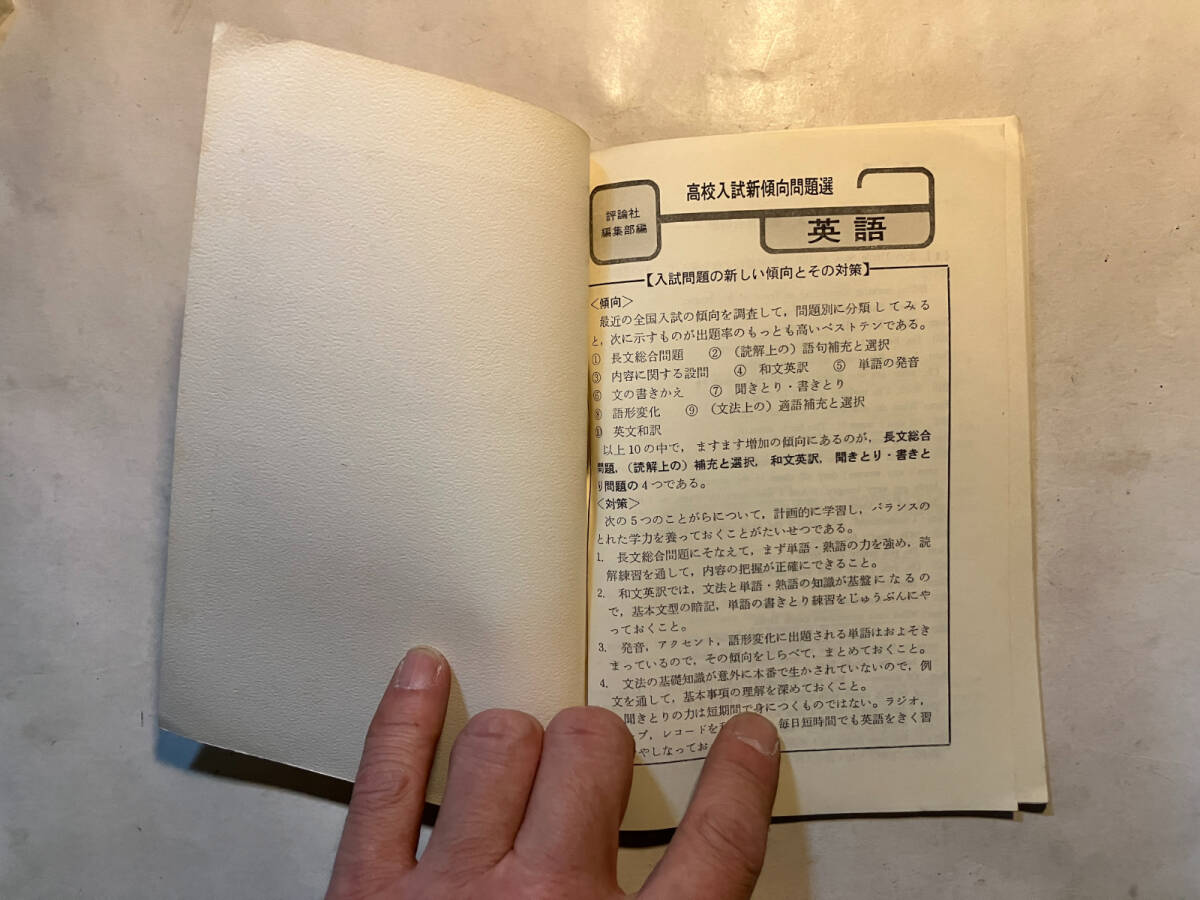 高校入試新傾向問題選
評論社
編集部編
英語
【入試問題の新しい傾向とその対策】
＜傾向＞
最近の全国入試の傾向を調査して，問題別に分類してみる
と，次に示すものが出題率のもっとも高いベストテンである。
① 長文総合問題 ② （読解上の）語句補充と選択
③ 内容に関する設問 ④ 和文英訳 ⑤ 単語の発音
⑥ 文の書きかえ ⑦ 聞きとり・書きとり
⑧ 語形変化 ⑨ （文法上の）適語補充と選択
⑩ 英文和訳
以上10の中で，ますます増加の傾向にあるのが，長文総合
問題，（読解上の）補充と選択，和文英訳，聞きとり・書きと
り問題の4つである。
＜対策＞
次の5つのことがらについて，計画的に学習し，バランスの
とれた学力を養っておくことがたいせつである。
1. 長文総合問題にそなえて，まず単語・熟語の力を強め，読
解練習を通して，内容の把握が正確にできること。
2. 和文英訳では，文法と単語・熟語の知識が基盤になるの
で，基本文型の暗記，単語の書きとり練習をじゅうぶんにや
っておくこと。
3. 発音，アクセント，語形変化に出題される単語はおよそき
まっているので，その傾向をしらべて，まとめておくこと。
4. 文法の基礎知識が意外に本番で生かされていないので，例
文を通して，基本事項の理解を深めておくこと。
聞きとりの力は短期間で身につくものではない。ラジオ，
プ，レコードを 毎日短時間でも英語をきく習
やしなってお